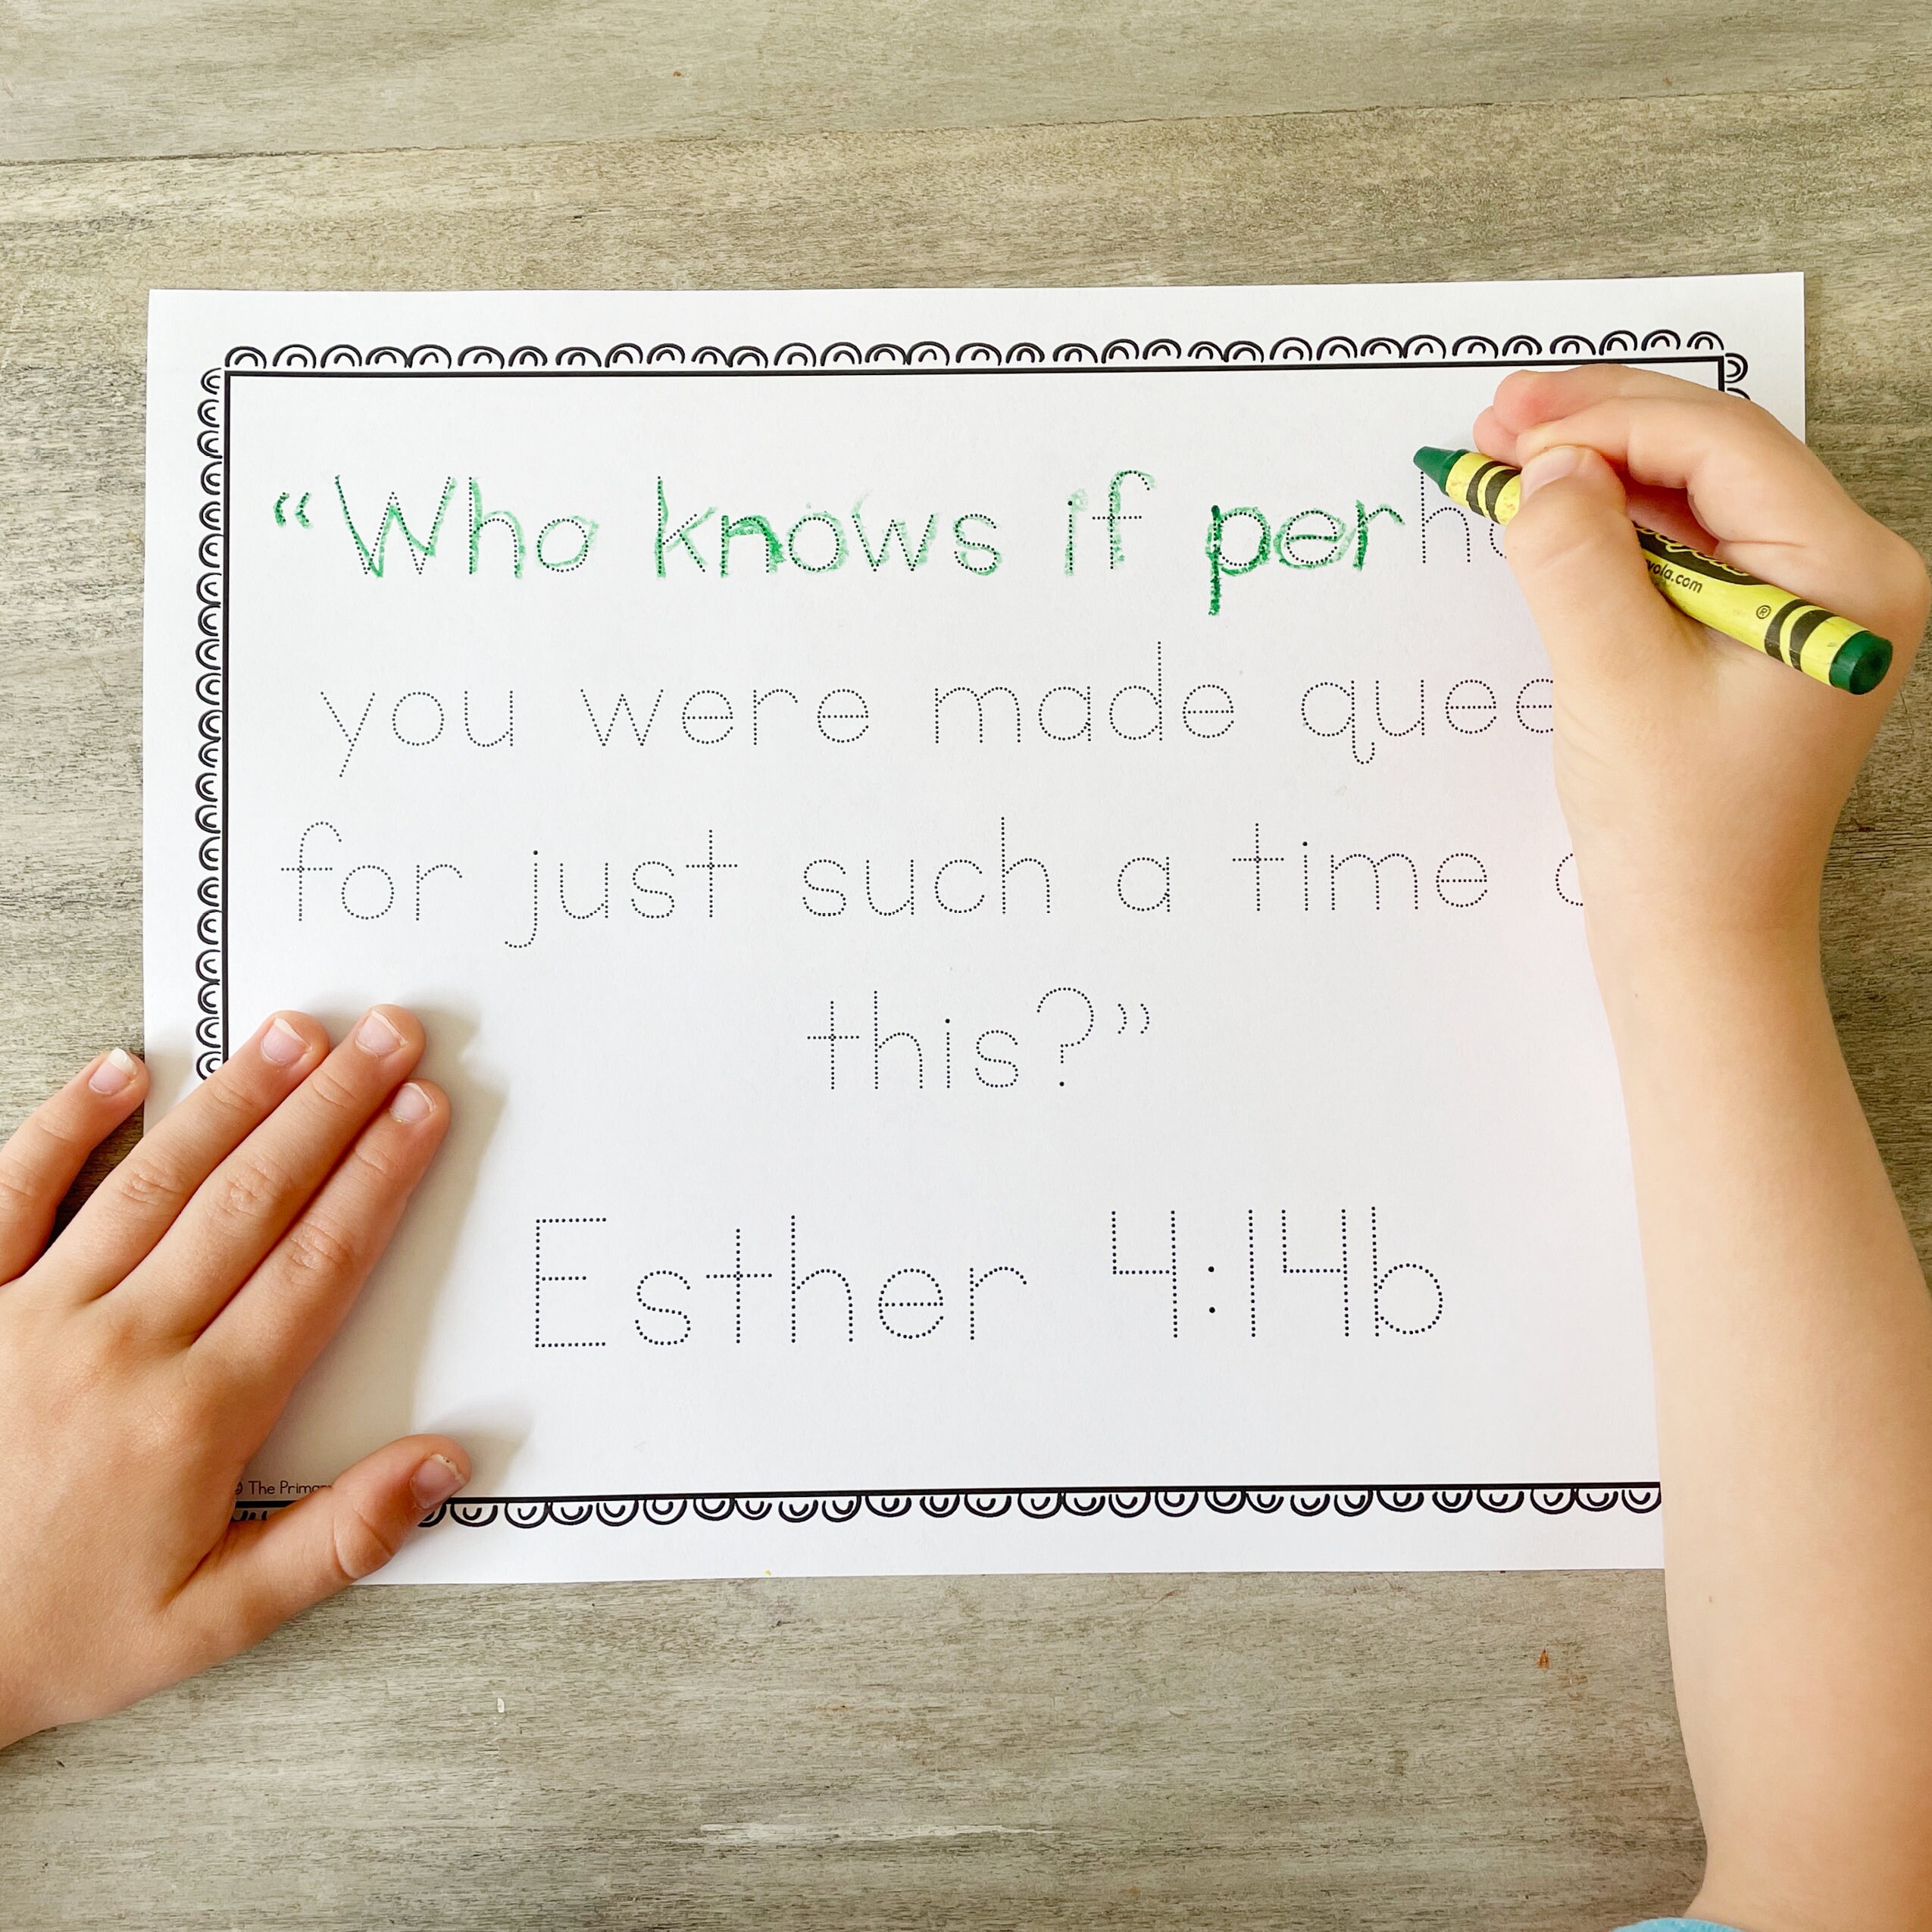 “Who knows if
you were made
for just such a time
this?”
Esther 4:14b
© The
yola.com
®